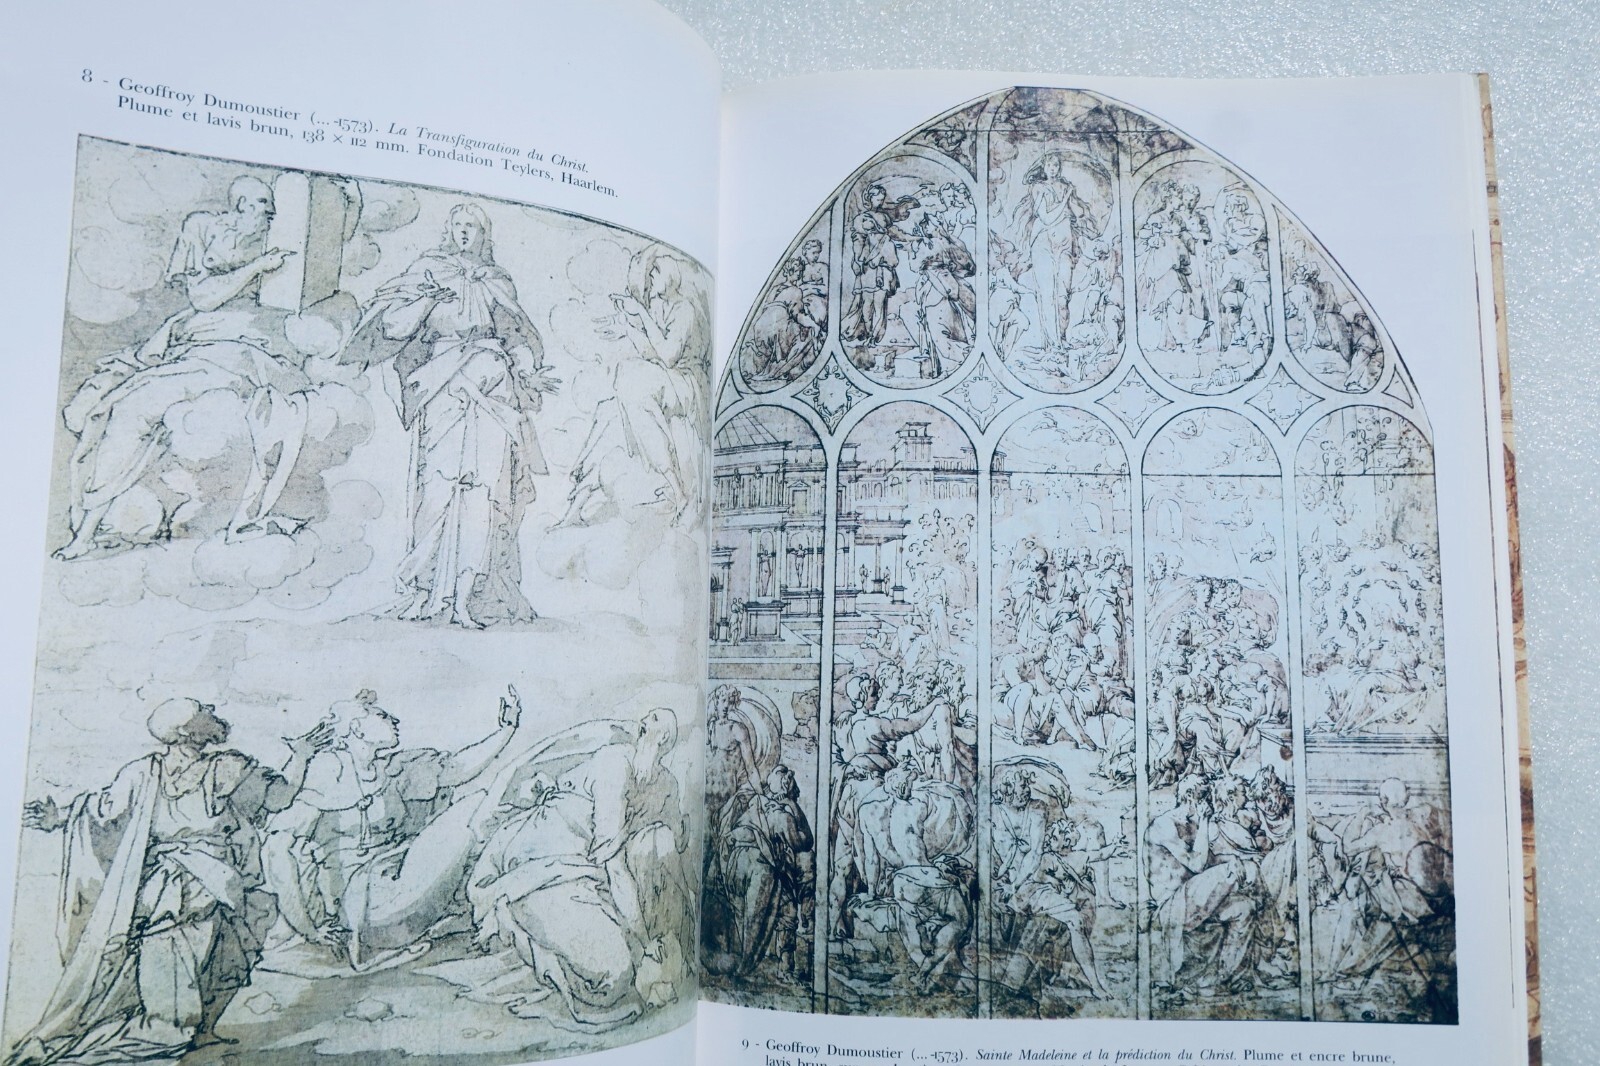 8 - Geoffroy Dumoustier (... -1573). La Transfiguration du Christ.
Plume et lavis brun, 138 × 112 mm. Fondation Teylers, Haarlem.
9 - Geoffroy Dumoustier (... -1573). Sainte Madeleine et la prédiction du Christ. Plume et encre brune,
lavis brun